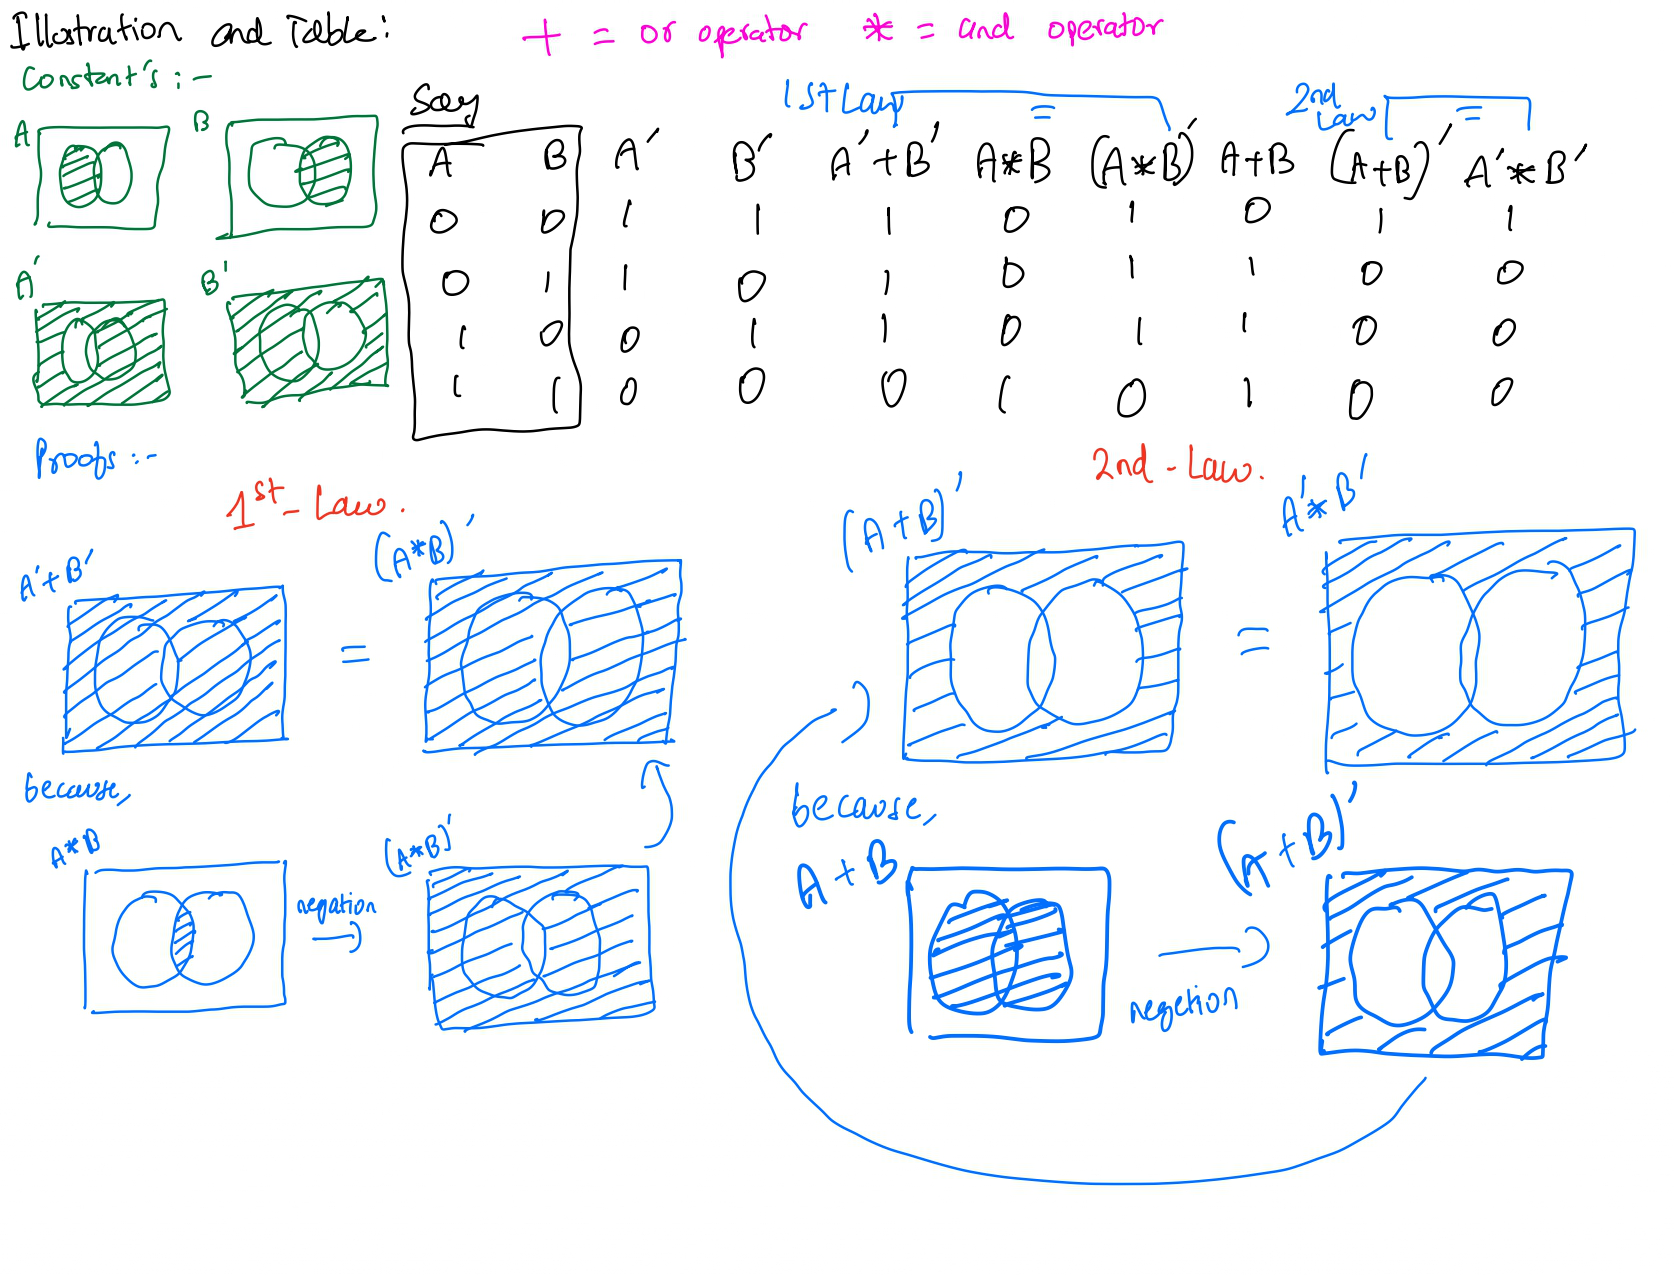 Illustration and Table:
+ = or operator * = and operator
Constant's :-
Say
1st Law =
2nd Law =
A B
A B A' B' A'+B' A*B (A*B)' A+B (A+B)' A'*B'
0 0 1 1 1 0 1 0 1 1
0 1 1 0 1 0 1 1 0 0
1 0 0 1 1 0 1 1 0 0
1 1 0 0 0 1 0 1 0 0
A' B'
Proofs :-
1st - Law.
2nd - Law.
A'+B' = (A*B)'
(A+B)' = A'*B'
because,
A*B negation (A*B)'
because,
A+B negetion (A+B)'